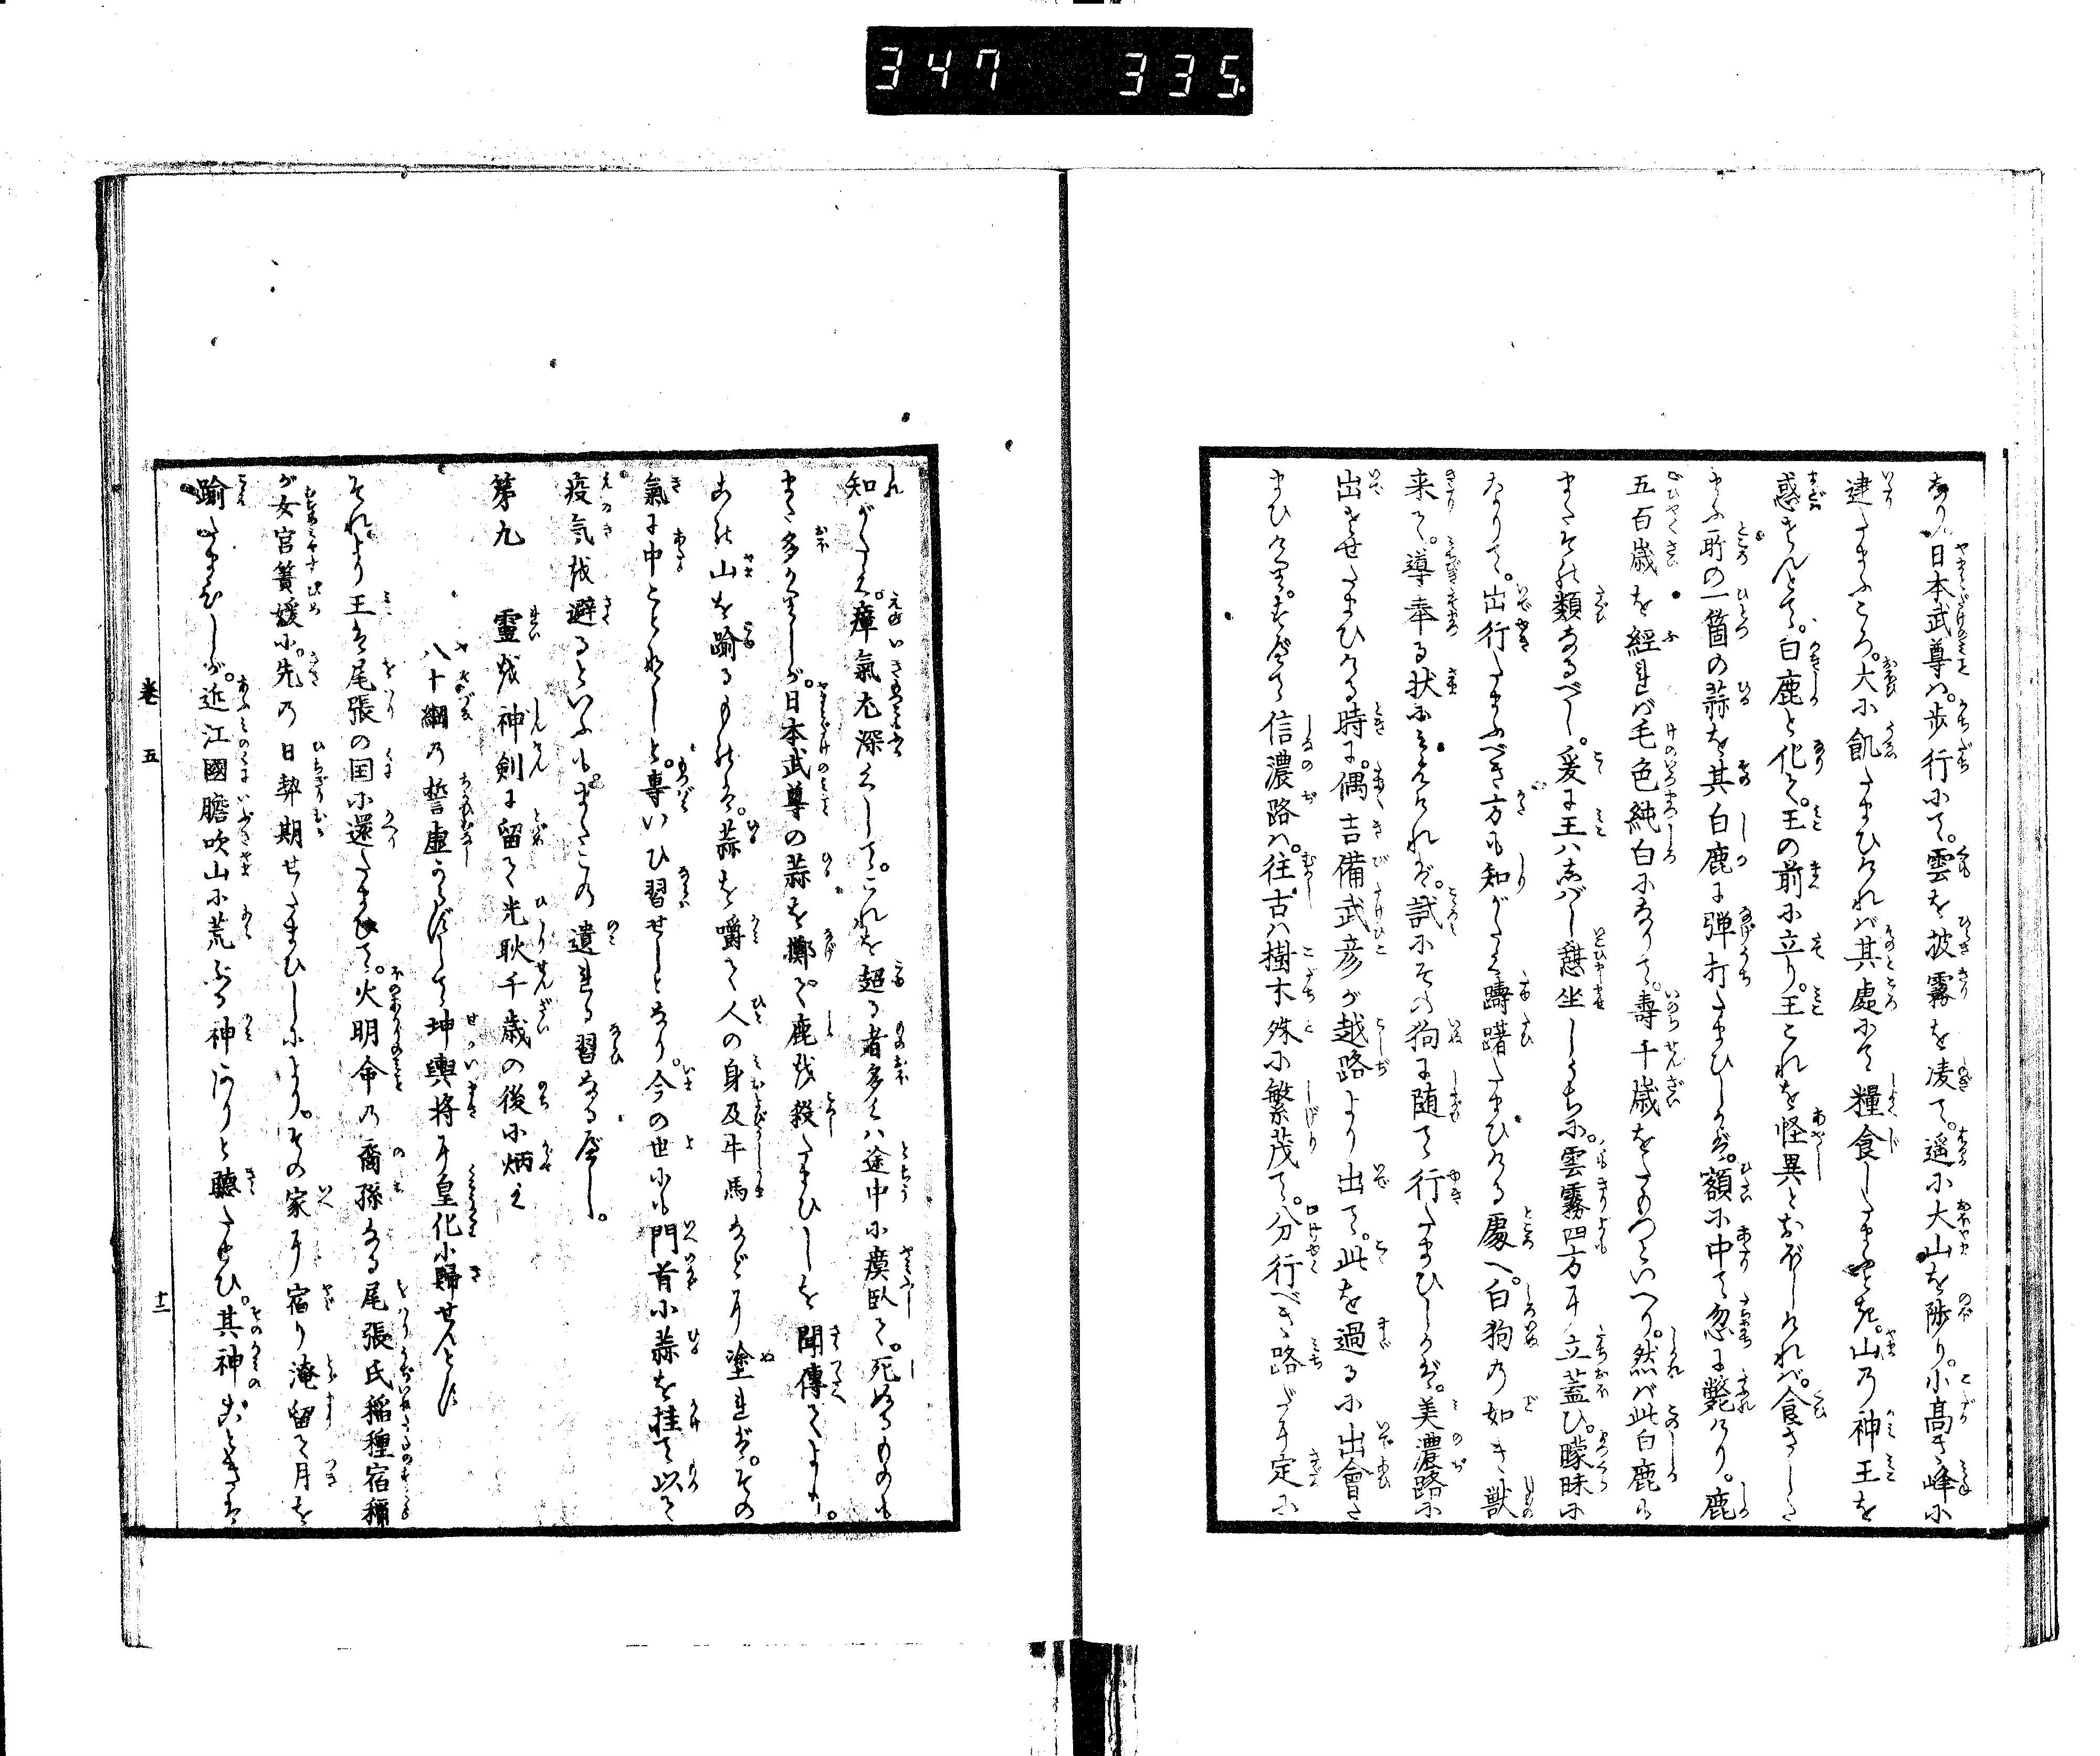 347 335
なり。日本武尊は。歩行にて。雲を披霧を凌て。遥に大山を陟り。小高き峰に
建たまふころ。大に飢たまひければ其處にて糧食したまふとき。山の神王を
惑さんとて。白鹿と化て。王の前に立り。王これを怪異とおぼしければ。食さした
まふ所の一箇の蒜を其白鹿に弾打たまひしかば。額に中て忽に斃けり。鹿
五百歳を經れば毛色純白になりて。壽千歳をたもつといへり。然ば此白鹿も
またその類なるべし。爰に王ハしばし憩坐しうちに。雲霧四方に立蓋ひ。朦昧に
なりて。出行たまふべき方も知がたく躊躇たまひける處へ。白狗の如き獣
来て。導奉る状に見えければ。試にその狗に随て行たまひしかば。美濃路に
出させたまひける時に。偶吉備武彦が越路より出て。此を過るに出會た
まひけり。すべて信濃路ハ。往古ハ樹木殊に繁茂て。分行べき路だに定に
知がたく。瘴氣尤深くして。これを超る者多くハ途中に瘼臥て。死ぬるものも
また多かりしが。日本武尊の蒜を擲て鹿を殺たまひしを聞傳てより。
この山を踰るものは。蒜を嚼て人の身及牛馬などに塗れば。その
氣に中ことなしと。專いひ習せしとなり。今の世にも門首に蒜を挂て以て
疫気を避るといふも。またこの遺れる習なるべし。
第九 靈を神剣に留て光耿千歳の後に炳之
八十綱の誓虚からずして坤輿将に皇化に歸せんとす
それより王は尾張の国に還たまひて。火明命の裔孫なる尾張氏稲種宿禰
が女宮簀媛に。先の日契期せたまひしによりて。その家に宿り淹留て月を
踰たまひしが。近江國膽吹山に荒ぶる神ありと聽たまひ。其神
巻五 十二